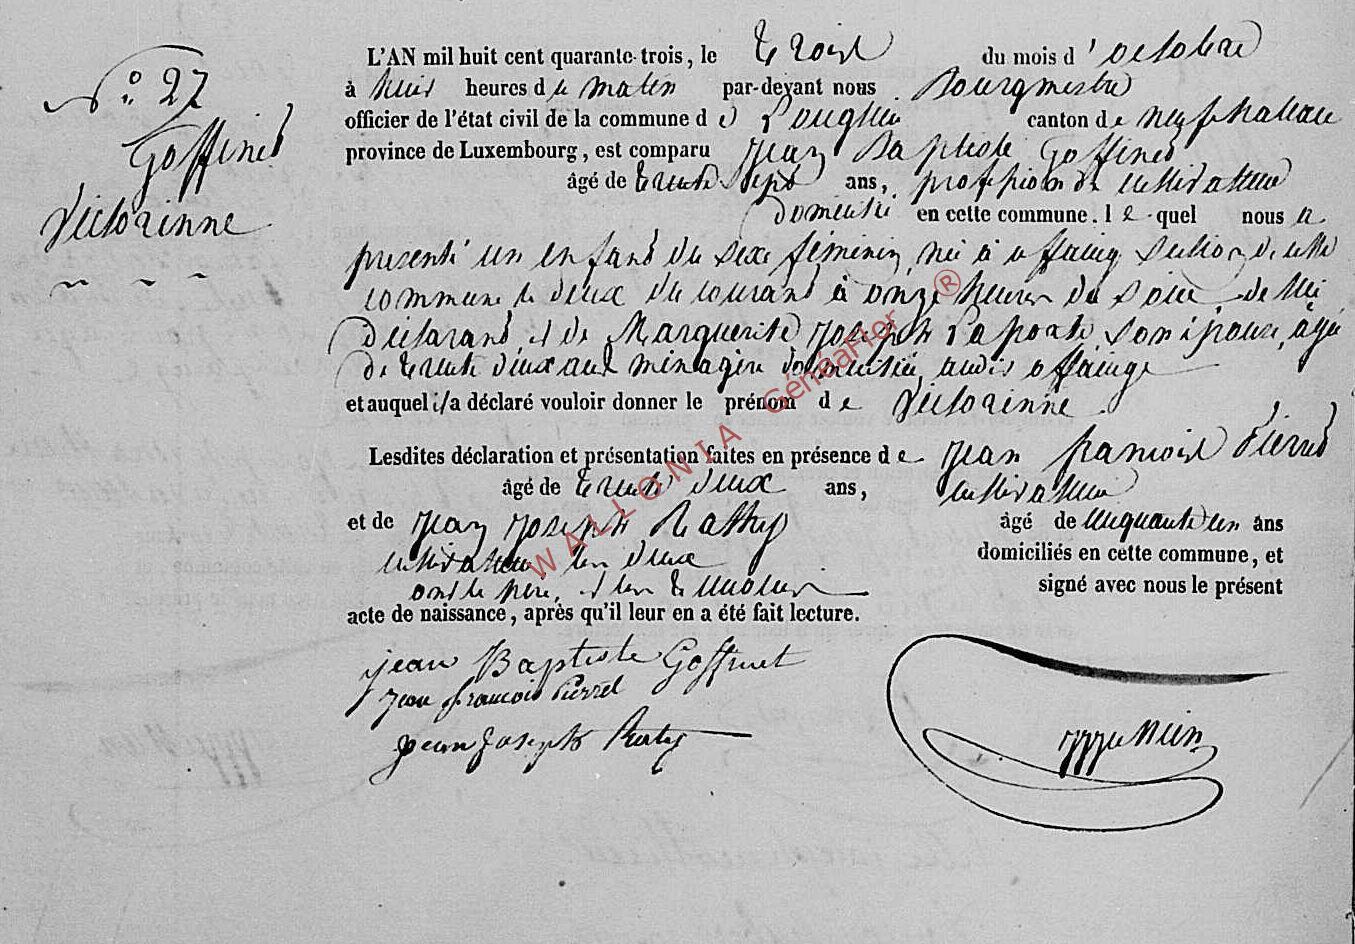 N° 27
Goffinet
Victorinne
L'AN mil huit cent quarante-trois, le trois du mois d'octobre
à huit heures de matin par-devant nous Bourgmestre
officier de l'état civil de la commune de canton de neufchateau
province de Luxembourg, est comparu Jean Baptiste Goffinet
âgé de trente sept ans, profession de cultivateur
domicilié en cette commune. le quel nous a
presenté un enfant du sexe féminin, née à offaing section de cette
commune le deux du courant à onze heures du soire de lui
Déclarant et de Marguerite Joseph Laporte, son épouse, âgée
de trente deux ans ménagère domiciliée audit offainge
et auquel il a déclaré vouloir donner le prénom de Victorinne
Lesdites déclaration et présentation faites en présence de Jean francois Pierret
âgé de trente deux ans, cultivateur
et de Jean Joseph Rathy âgé de cinquante un ans
cultivateur les deux domiciliés en cette commune, et
ont le père, et les temoins signé avec nous le présent
acte de naissance, après qu'il leur en a été fait lecture.
jean Baptiste Goffinet
Jean françois Pierret
jean joseph Raty
WALLONIA GénéaFlor ®